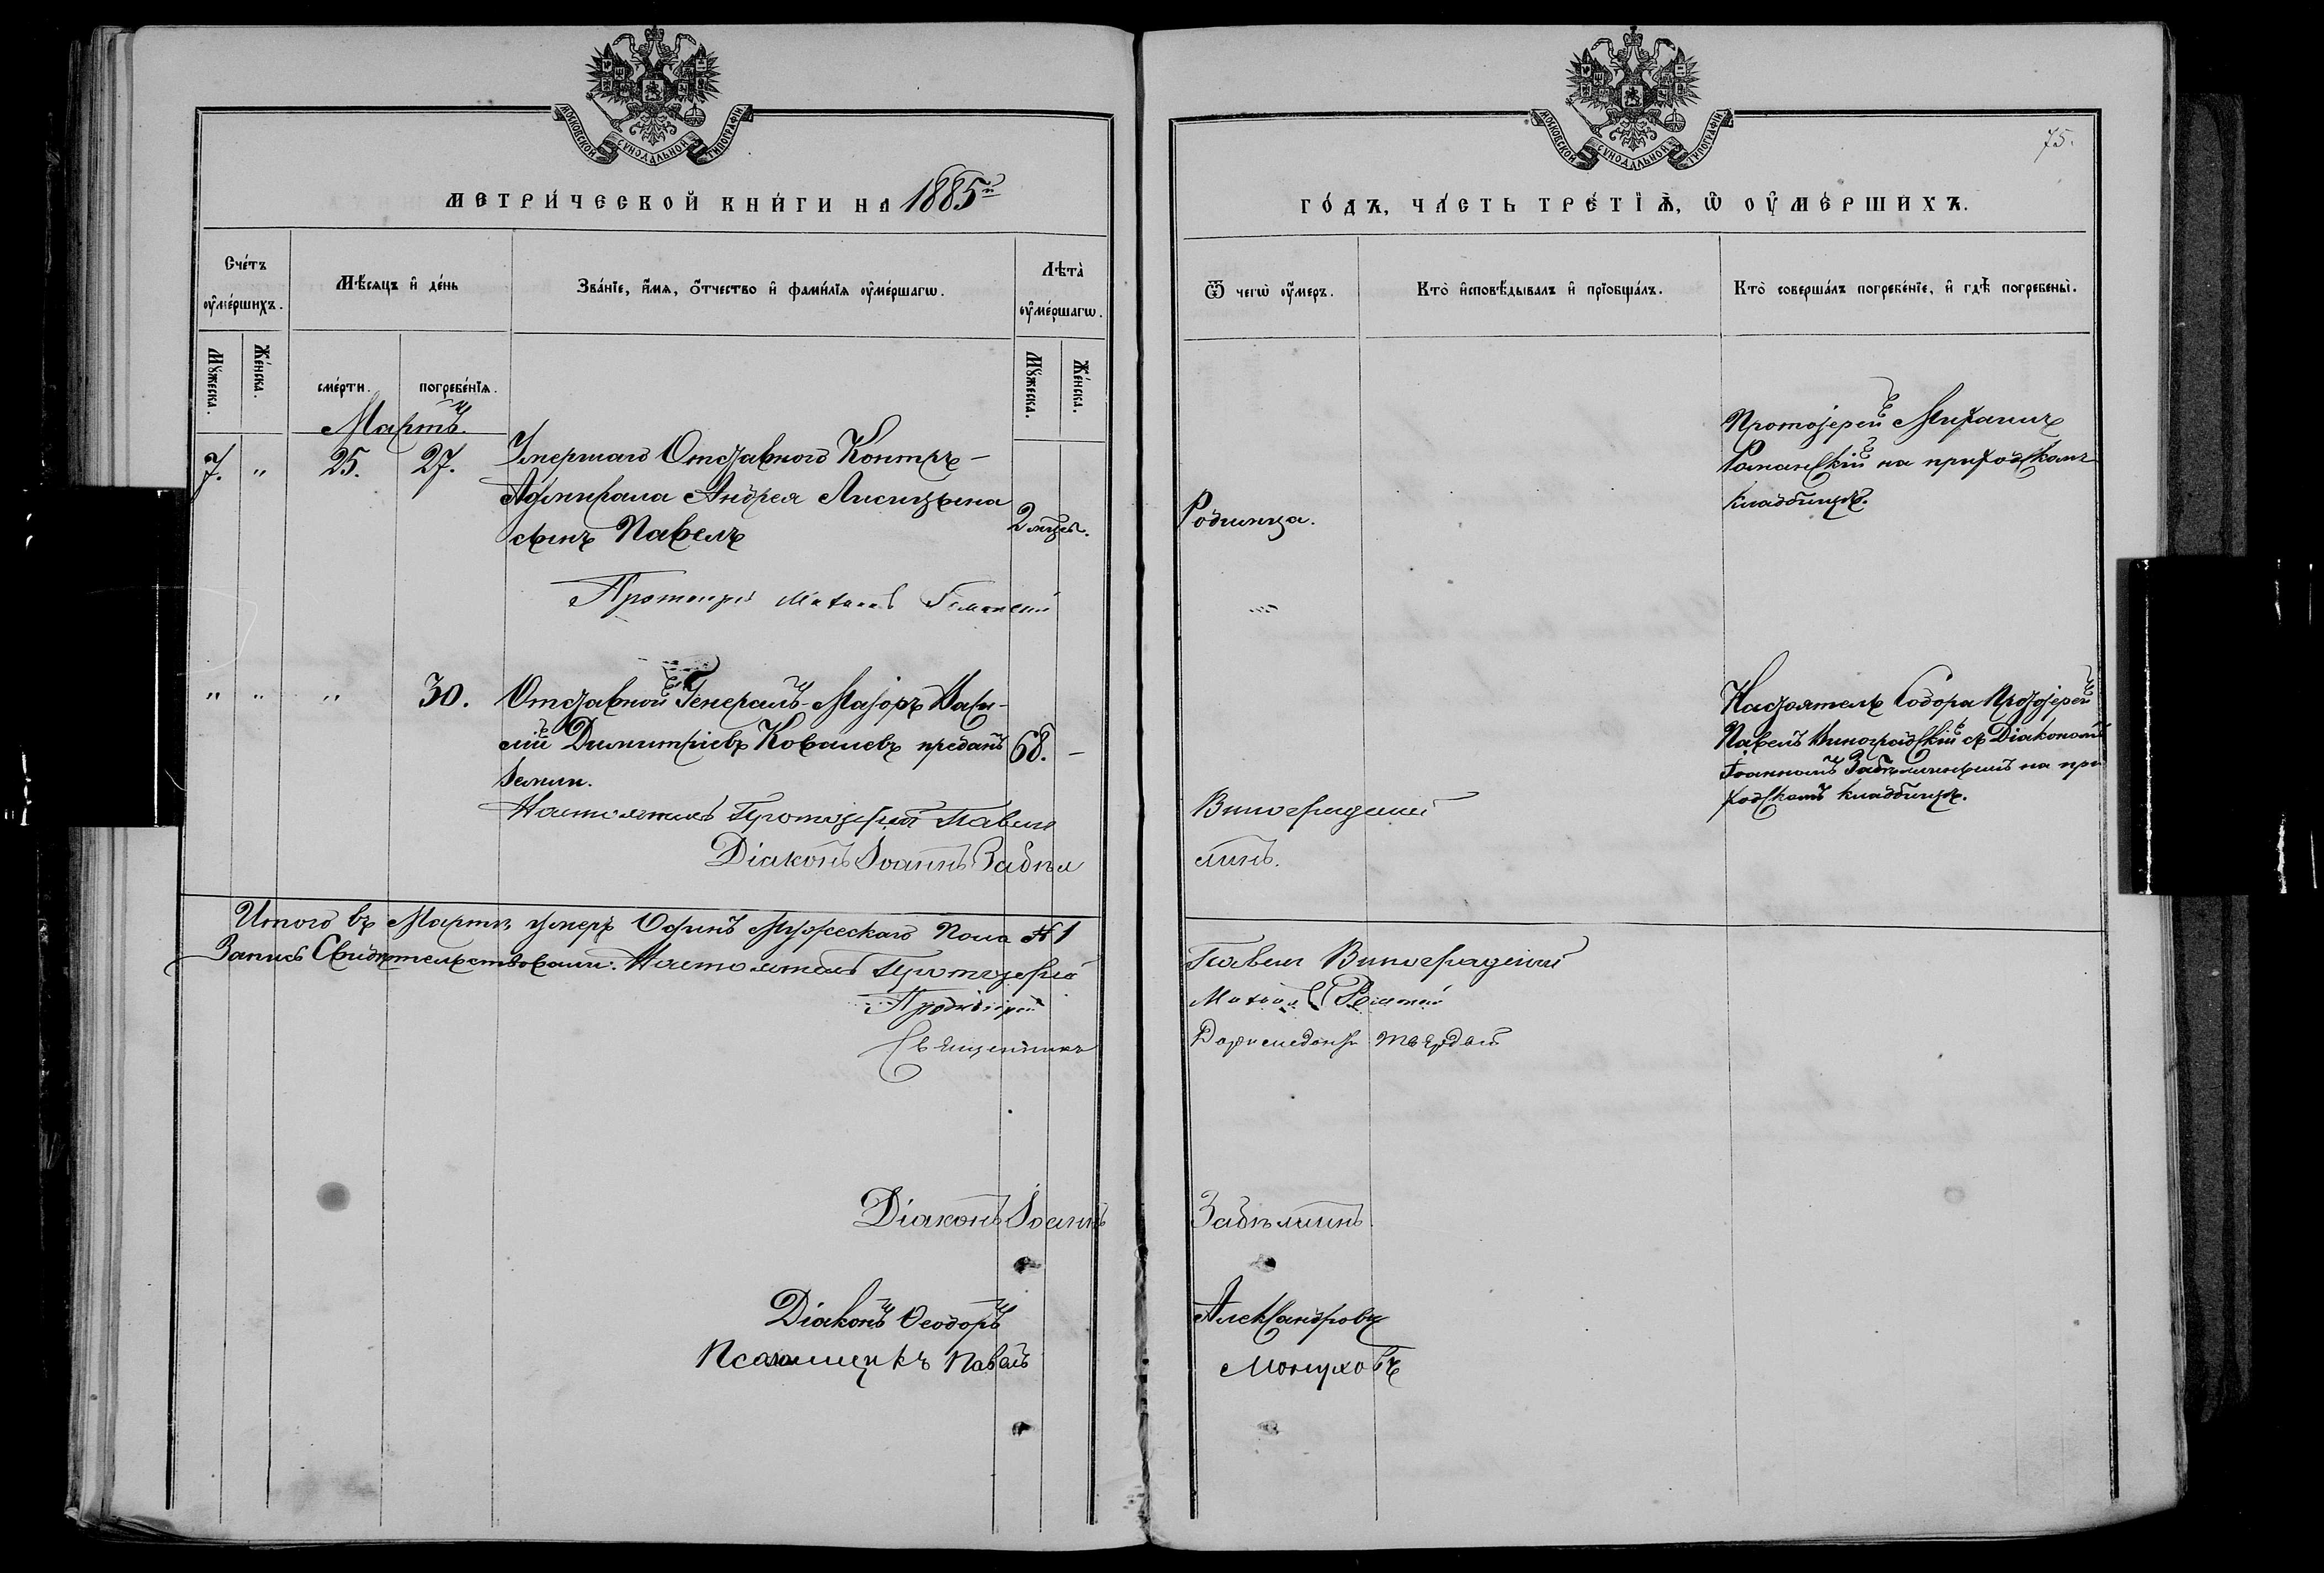 МОСКОВСКОЙ СѴНОДАЛЬНОЙ ТИПОГРАФІИ
МЕТРИ́ЧЕСКОЙ КНИ́ГИ НА 1885й
Сче́тъ ᲂу҆ме́ршихъ.
Мѣ́сяцъ и҆ де́нь
Зва́нїе, и҆́мѧ, ѻ҆́тчество и҆ фами́лїѧ ᲂу҆ме́ршагѡ.
Лѣта̀ ᲂу҆ме́ршагѡ.
Мꙋ́жеска.
Же́нска.
сме́рти.
погребе́нїѧ.
Мꙋ́жеска.
Же́нска.
Мартъ.
7. " 25. 27. Умершаго Отставного Контръ-
Адмирала Андрея Лисицына
сынъ Павелъ 2 мѣс.
Протоіерей Михаилъ Романскій
" " " 30. Отставной Генералъ-Маіоръ Васи-
лій Димитріевъ Ковалевъ преданъ 68. -
земли.
Настоятель Протоіерей Павелъ
Діаконъ Іоаннъ Забѣл
Итого въ Мартѣ умеръ Одинъ Мужескаго Пола № 1
Запись Свидѣтельствовали: Настоятель Протоіерей
Протоіерей
Священникъ
Діаконъ Іоаннъ
Діаконъ Ѳеодоръ
Псаломщикъ Павелъ
МОСКОВСКОЙ СѴНОДАЛЬНОЙ ТИПОГРАФІИ
75.
ГО́ДЪ, ЧА́СТЬ ТРЕ́ТЇѦ, Ѡ҆ ОУ҆МЕ́РШИХЪ.
Ѿ чегѡ̀ ᲂу҆́меръ.
Кто̀ и҆сповѣ́дывалъ и҆ прїѡбща́лъ.
Кто̀ соверша́лъ погребе́нїе, и҆ гдѣ̀ погребены̀.
Протоіерей Михаилъ
Романскій на приходскомъ
кладбищѣ.
Родимца.
Настоятель Собора Протоіерей
Павелъ Виноградскій съ Діакономъ
Іоанномъ Забѣлинымъ на при
ходскомъ кладбищѣ.
Виноградскій
линъ.
Павелъ Виноградскій
Михаилъ Романскій
Доримедонтъ Твердый
Забѣлинъ.
Александровъ